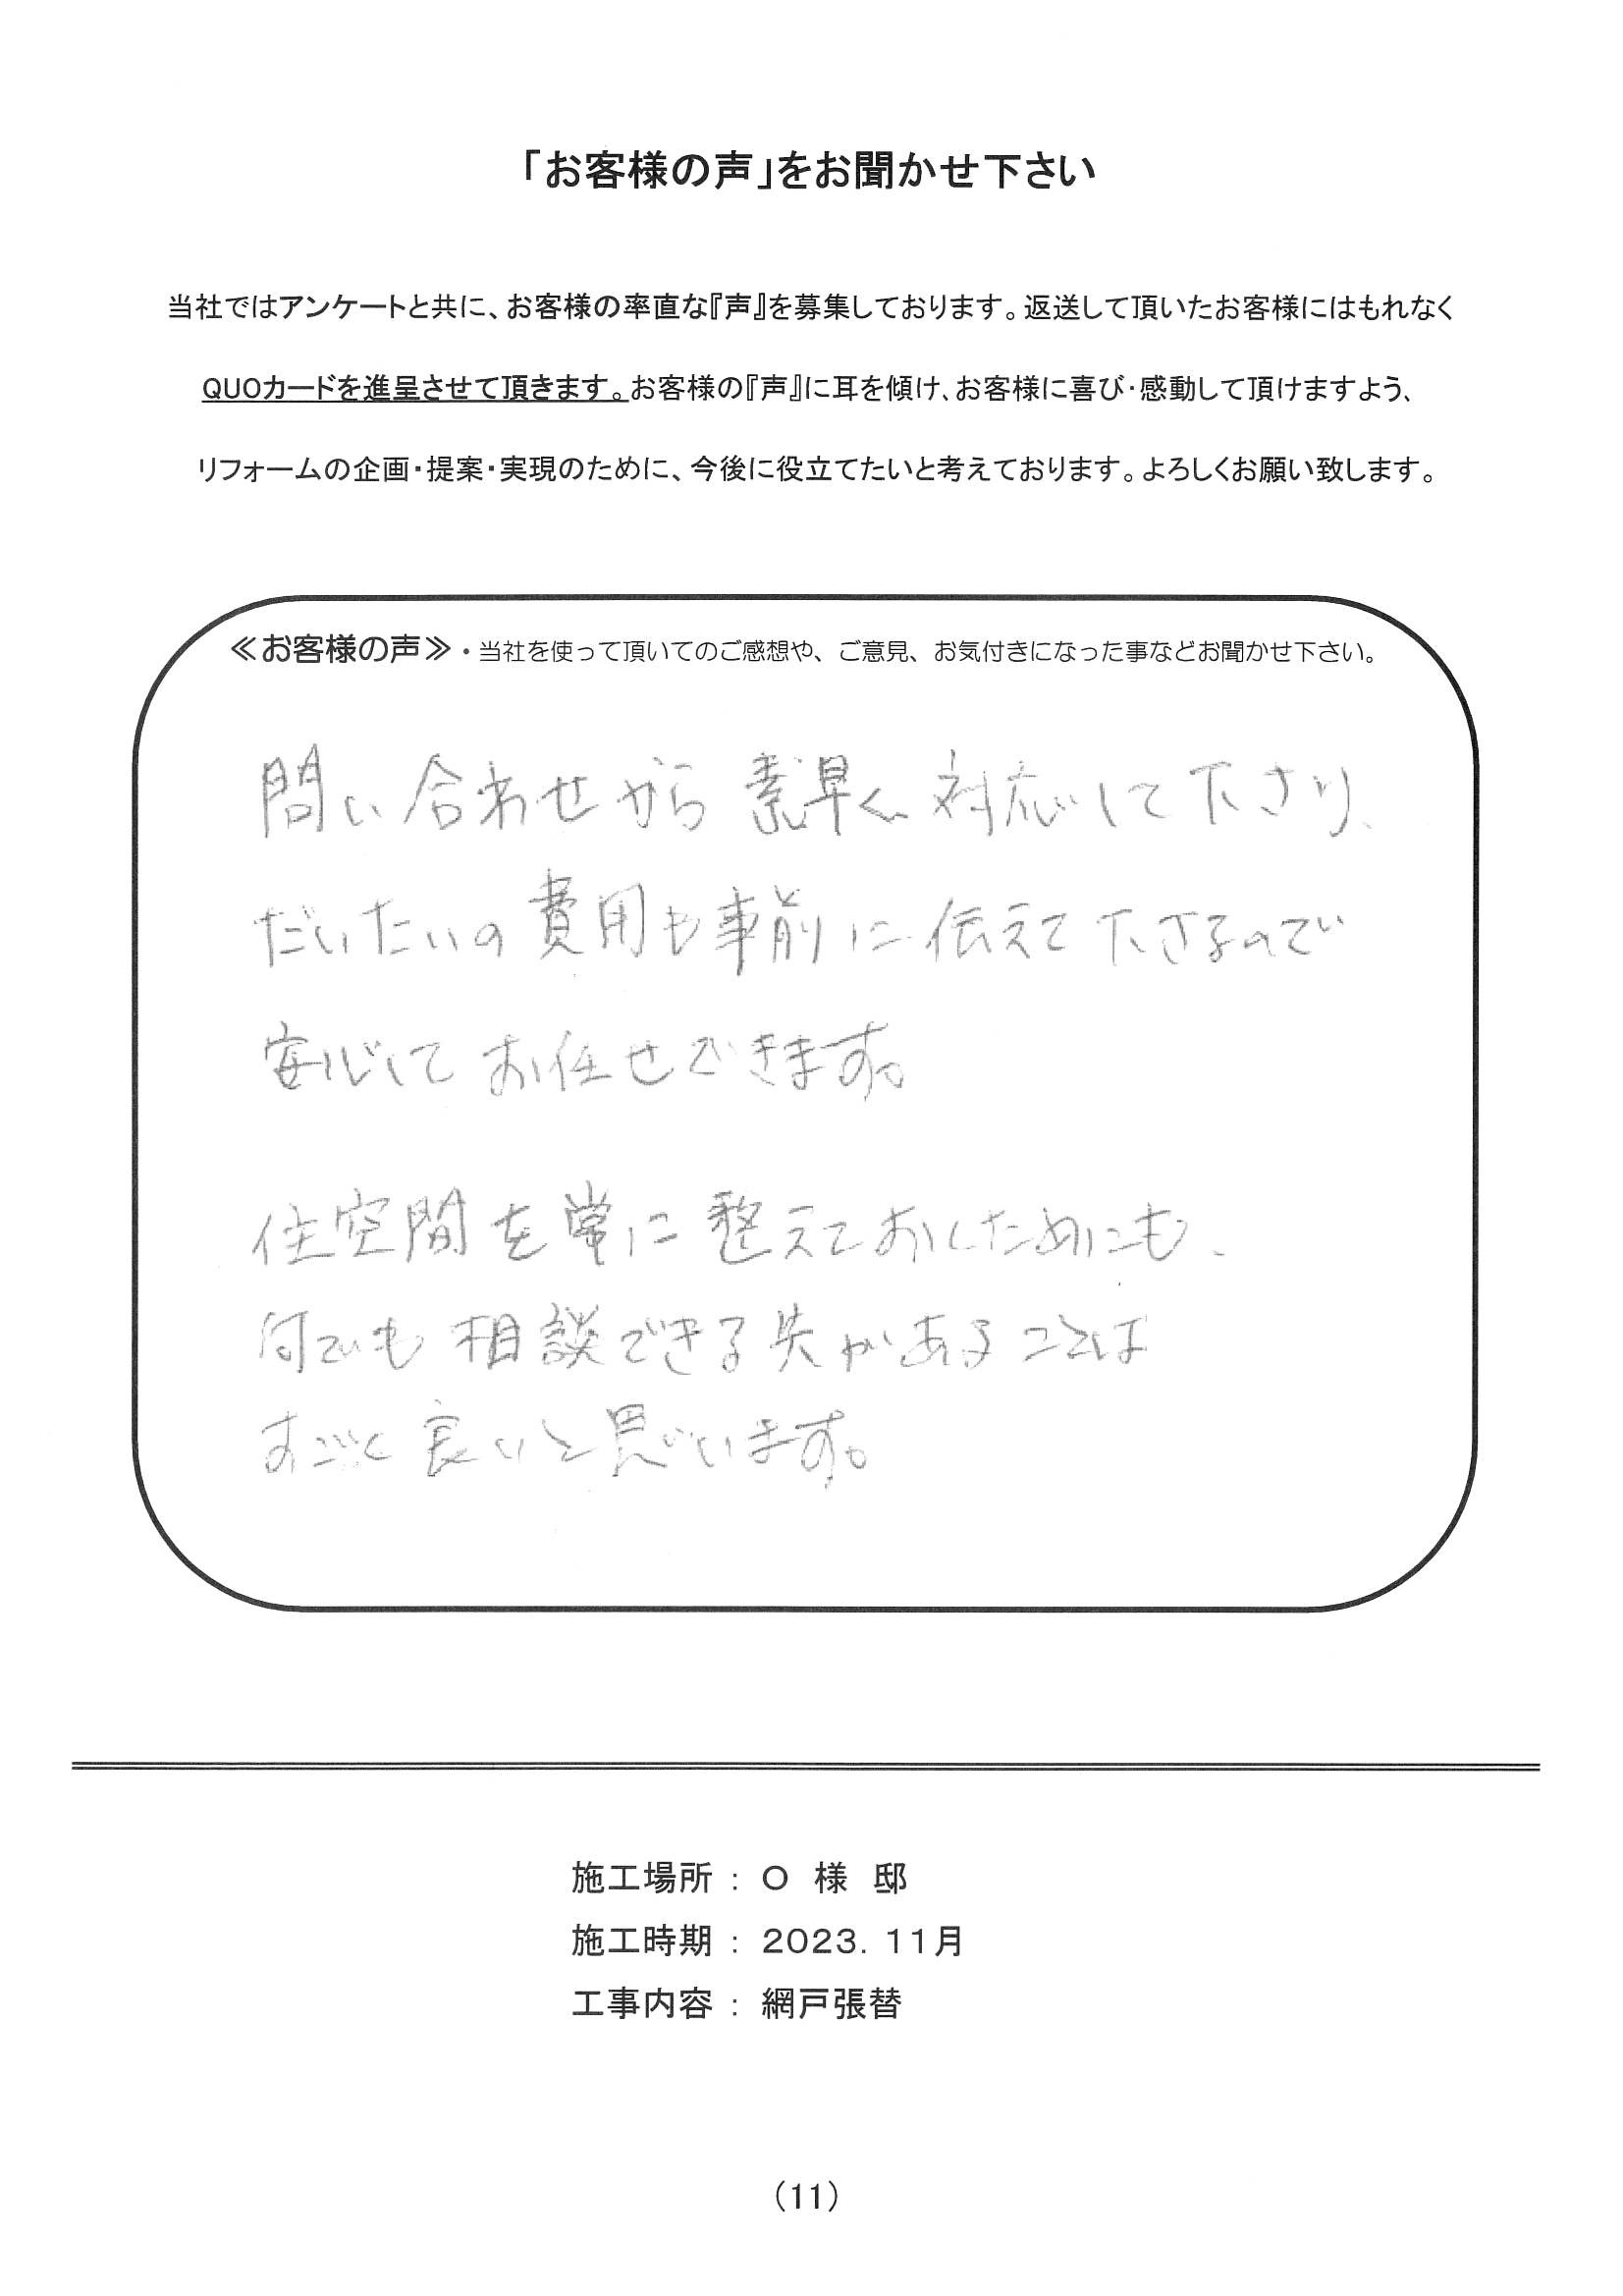 「お客様の声」をお聞かせ下さい
当社ではアンケートと共に、お客様の率直な『声』を募集しております。返送して頂いたお客様にはもれなく
QUOカードを進呈させて頂きます。お客様の『声』に耳を傾け、お客様に喜び・感動して頂けますよう、
リフォームの企画・提案・実現のために、今後に役立てたいと考えております。よろしくお願い致します。
≪お客様の声≫・当社を使って頂いてのご感想や、ご意見、お気付きになった事などお聞かせ下さい。
問い合わせから素早く対応して下さり、
だいたいの費用も事前に伝えて下さるので
安心してお任せできます。
住空間を常に整えておくためにも、
何でも相談できる先があることは
すごく良いと思います。
施工場所 : O 様 邸
施工時期 : 2023. 11月
工事内容 : 網戸張替
(11)